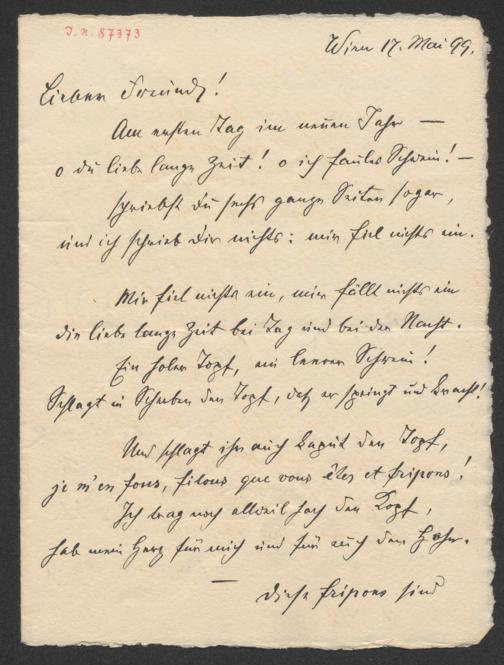 I. N. 87373
Wien 17. Mai 99.
Lieber Freund!
Am ersten Tag im neuen Jahr —
o du liebe lange Zeit! o ich faules Schwein! —
schriebst du sechs ganze Seiten sogar,
und ich schrieb dir nichts: mir fiel nichts ein.
Mir fiel nichts ein, mir fällt nichts ein
die liebe lange Zeit bei Tag und bei der Nacht.
Ein hohler Topf, ein leerer Schrein!
Schlagt in Scherben den Topf, daß er springt und kracht!
Und schlagt ihr auch kaput den Topf,
je m'en fous, filous que vous êtes et fripons!
Ich trag noch allweil hoch den Kopf,
hab mein Herz für mich und für euch den
—
Diese fripons sind